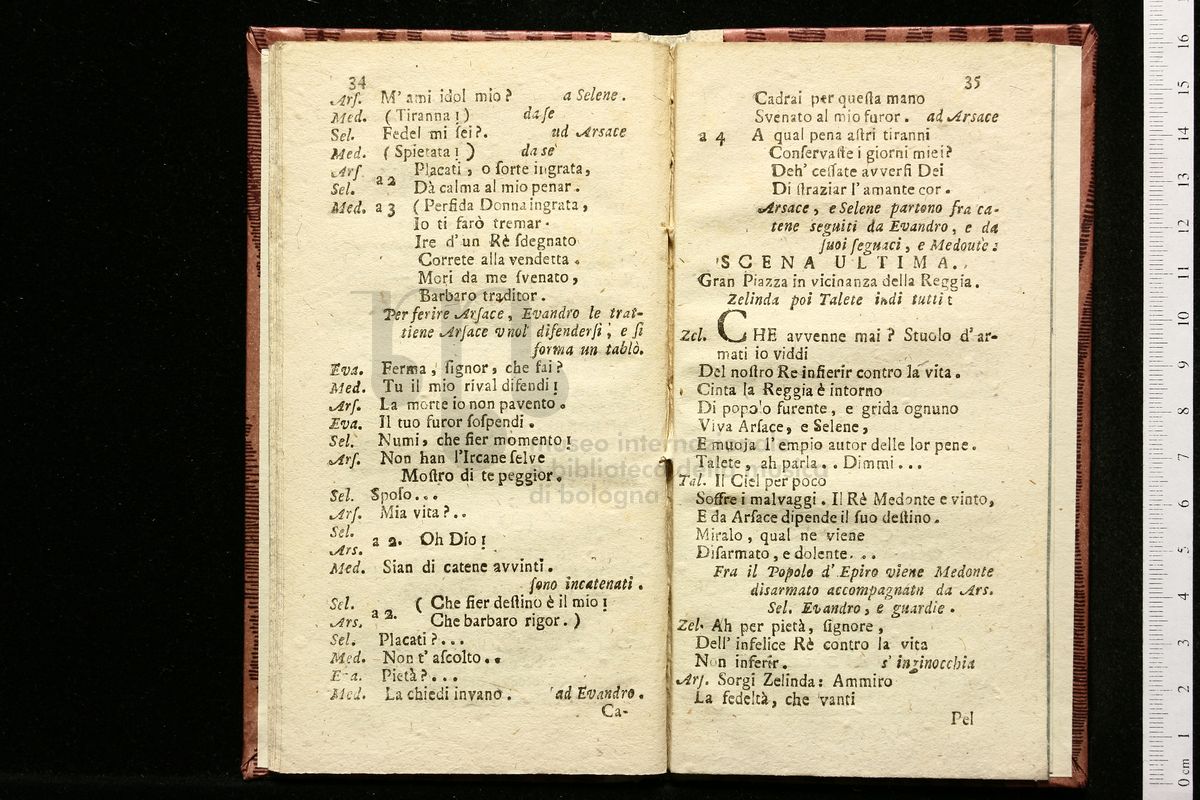 34
Arſ. M' ami idol mio? a Selene.
Med. (Tiranna!) da ſe
Sel. Fedel mi ſei?. ad Arſace
Med. (Spietata!) da se
Arſ. Placati, o ſorte ingrata,
Sel. a 2 Dà calma al mio penar.
Med. a 3 (Perfida Donna ingrata,
Io ti farò tremar.
Ire d'un Rè ſdegnato
Correte alla vendetta.
Mori da me ſvenato,
Barbaro traditor.
Per ferire Arſace, Evandro le trat-
tiene Arſace vuol difenderſi, e ſi
forma un tablò.
Eva. Ferma, ſignor, che fai?
Med. Tu il mio rival difendi!
Arſ. La morte io non pavento.
Eva. Il tuo furor ſoſpendi.
Sel. Numi, che fier momento!
Arſ. Non han l'Ircane ſelve
Moſtro di te peggior.
Sel. Spoſo...
Arſ. Mia vita?..
Sel.
Ars. a 2. Oh Dio!
Med. Sian di catene avvinti.
ſono incatenati.
Sel. ( Che fier deſtino è il mio!
Ars. a 2. Che barbaro rigor.)
Sel. Placati?...
Med. Non t' aſcolto..
Eva. Pietà?...
Med. La chiedi invano. ad Evandro.
Ca-
35
Cadrai per queſta mano
Svenato al mio furor. ad Arſace
a 4 A qual pena aſtri tiranni
Conſervaſte i giorni miei?
Deh' ceſſate avverſi Dei
Di ſtraziar l'amante cor.
Arſace, e Selene partono fra ca-
tene seguiti da Evandro, e da
ſuoi ſeguaci, e Medonte:
SCENA ULTIMA.
Gran Piazza in vicinanza della Reggia.
Zelinda poi Talete indi tutti:
Zel. CHE avvenne mai? Stuolo d'ar-
mati io viddi
Del noſtro Re infierir contro la vita.
Cinta la Reggia è intorno
Di popolo furente, e grida ognuno
Viva Arſace, e Selene,
E muoja l'empio autor delle lor pene.
Talete, ah parla.. Dimmi...
Tal. Il Ciel per poco
Soffre i malvaggi. Il Rè Medonte e vinto,
E da Arſace dipende il ſuo deſtino.
Miralo, qual ne viene
Diſarmato, e dolente...
Fra il Popolo d' Epiro viene Medonte
disarmato accompagnato da Ars.
Sel. Evandro, e guardie.
Zel. Ah per pietà, ſignore,
Dell' infelice Rè contro la vita
Non inferir. s' inginocchia
Arſ. Sorgi Zelinda: Ammiro
La fedeltà, che vanti
Pel
museo internazionale
e biblioteca della musica
di bologna
0 cm 1 2 3 4 5 6 7 8 9 10 11 12 13 14 15 16